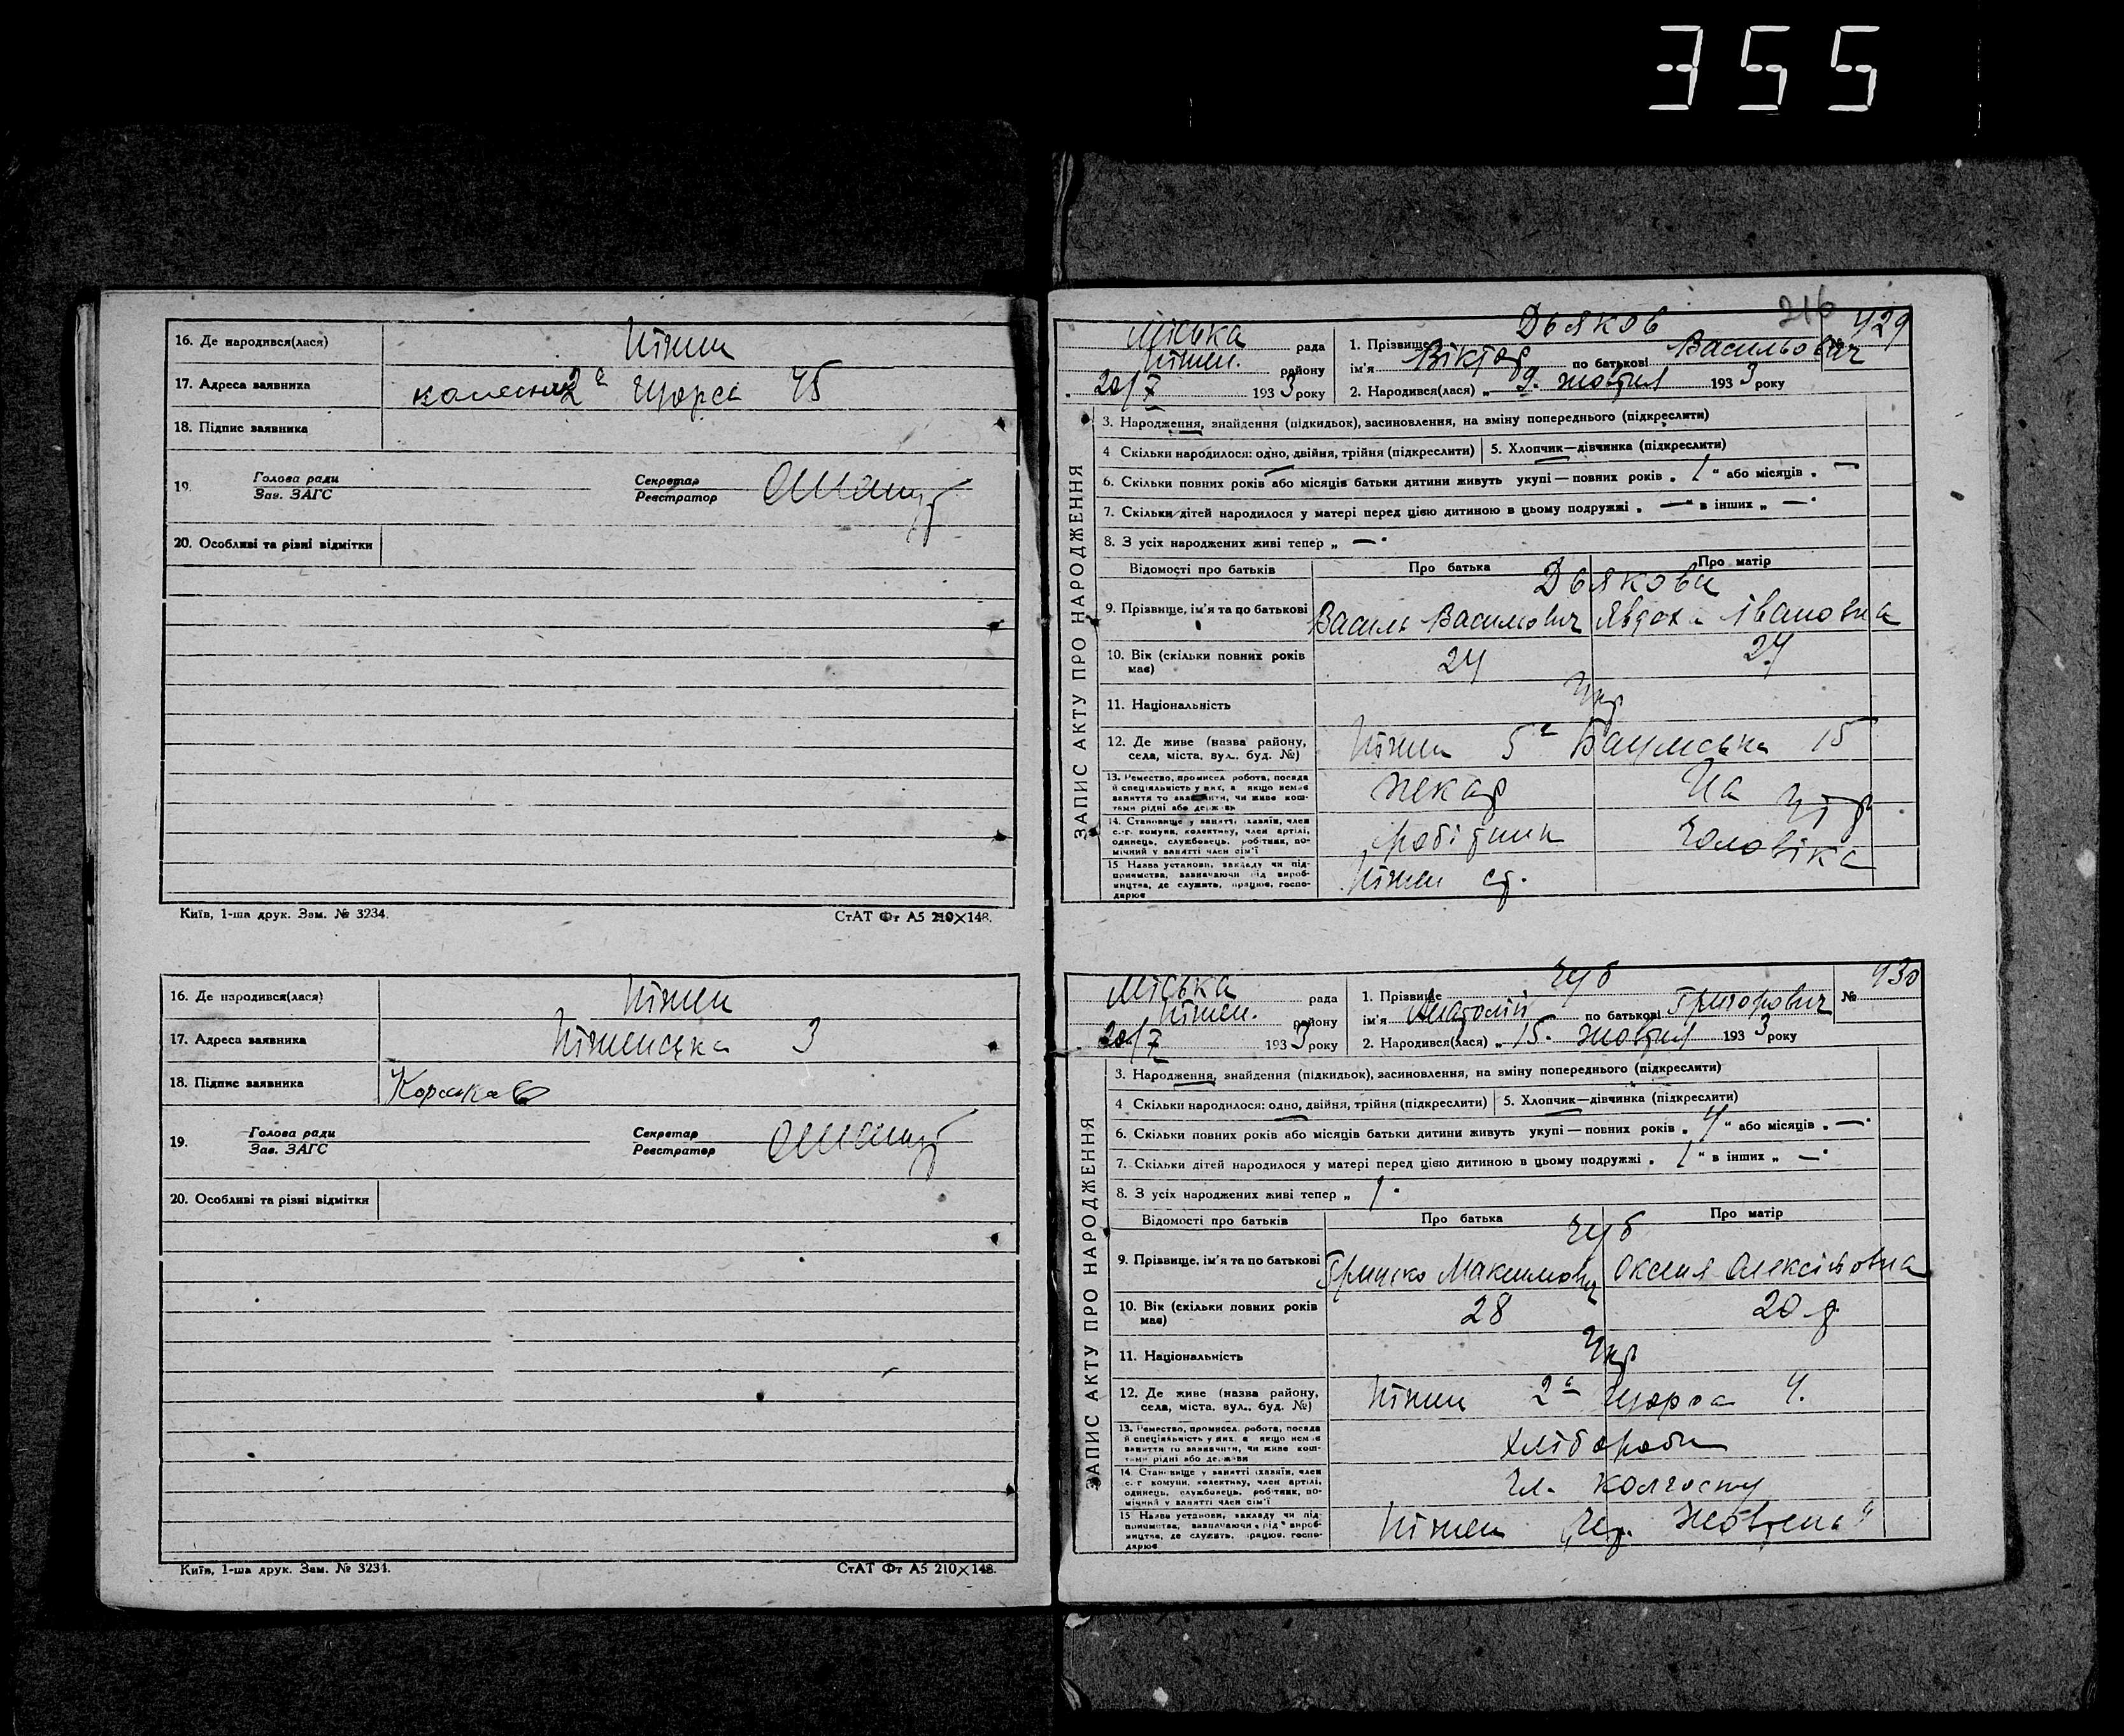 355
16. Де народився(лася) Ніжин
17. Адреса заявника 2а Щорса 45
18. Підпис заявника
19. Голова ради Секретар
Зав. ЗАГС Реєстратор
20. Особливі та різні відмітки
Київ, 1-ша друк. Зам. № 3234. СтАТ Фт А5 210×148.
16. Де народився(лася) Ніжен
17. Адреса заявника Ніженська 3
18. Підпис заявника
19. Голова ради Секретар
Зав. ЗАГС Реєстратор
20. Особливі та різні відмітки
Київ, 1-ша друк. Зам. № 3234. СтАТ Фт А5 210×148.
216
ЗАПИС АКТУ ПРО НАРОДЖЕННЯ
Міська рада
Ніжен. району
1933 року
1. Прізвище Дьяков № 429
ім'я Віктор по батькові Васильович
2. Народився(лася) „ 9. жовтня 1933 року
3. Народження, знайдення (підкидьок), засиновлення, на вміну попереднього (підкреслити)
4 Скільки народилося: одно, двійня, трійня (підкреслити) 5. Хлопчик—дівчинка (підкреслити)
6. Скільки повних років або місяців батьки дитини живуть укупі — повних років „ 1 “ або місяців „ —
7. Скільки дітей народилося у матері перед цією дитиною в цьому подружжі „ — “ в інших „ — “
8. З усіх народжених живі тепер „ — “
Відомості про батьків Про батька Про матір
Дьякови
9. Прізвище, ім'я та по батькові Василь Васильович Явдоха Івановна
10. Вік (скільки повних років має) 24 24
11. Національність Укр
12. Де живе (назва району, села, міста, вул., буд. №) Ніжен 5а 15
13. Ремество, промисел, робота, посада й спеціяльність у них, а якщо немає заняття то зазначити, чи живе коштами рідні або держави пекар На утр
14. Становище у занятті (хазяїн, член с.-г. комуни, колективу, член артілі, одинець, службовець, робітник, помічний у занятті член сім'ї робітник чоловіка
15 Назва установи, закладу чи підприємства, зазначаючи від виробництва, де служить, працює, господарює Ніжен ст.
ЗАПИС АКТУ ПРО НАРОДЖЕННЯ
Міська рада
Ніжен. району
1933 року
1. Прізвище Чуб № 430
ім'я Анатолій по батькові Григорович
2. Народився(лася) „ 15. жовтня 1933 року
3. Народження, знайдення (підкидьок), засиновлення, на вміну попереднього (підкреслити)
4 Скільки народилося: одно, двійня, трійня (підкреслити) 5. Хлопчик—дівчинка (підкреслити)
6. Скільки повних років або місяців батьки дитини живуть укупі — повних років „ 4 “ або місяців „ — “
7. Скільки дітей народилося у матері перед цією дитиною в цьому подружжі „ 1 “ в інших „ — “
8. З усіх народжених живі тепер „ 1 “
Відомості про батьків Про батька Про матір
Чуб
9. Прізвище, ім'я та по батькові Грицько Максимович Оксеня Олексіївна
10. Вік (скільки повних років має) 28 20 р
11. Національність Укр
12. Де живе (назва району, села, міста, вул., буд. №) Ніжен 2а Щорса 4.
13. Ремество, промисел, робота, посада й спеціяльність у них, а якщо немає заняття то зазначити, чи живе коштами рідні або держави хлібороби
14. Становище у занятті (хазяїн, член с.-г. комуни, колективу, член артілі, одинець, службовець, робітник, помічний у занятті член сім'ї чл. колгоспу
15 Назва установи, закладу чи підприємства, зазначаючи від виробництва, де служить, працює, господарює Ніжен Жовтень“
Київ